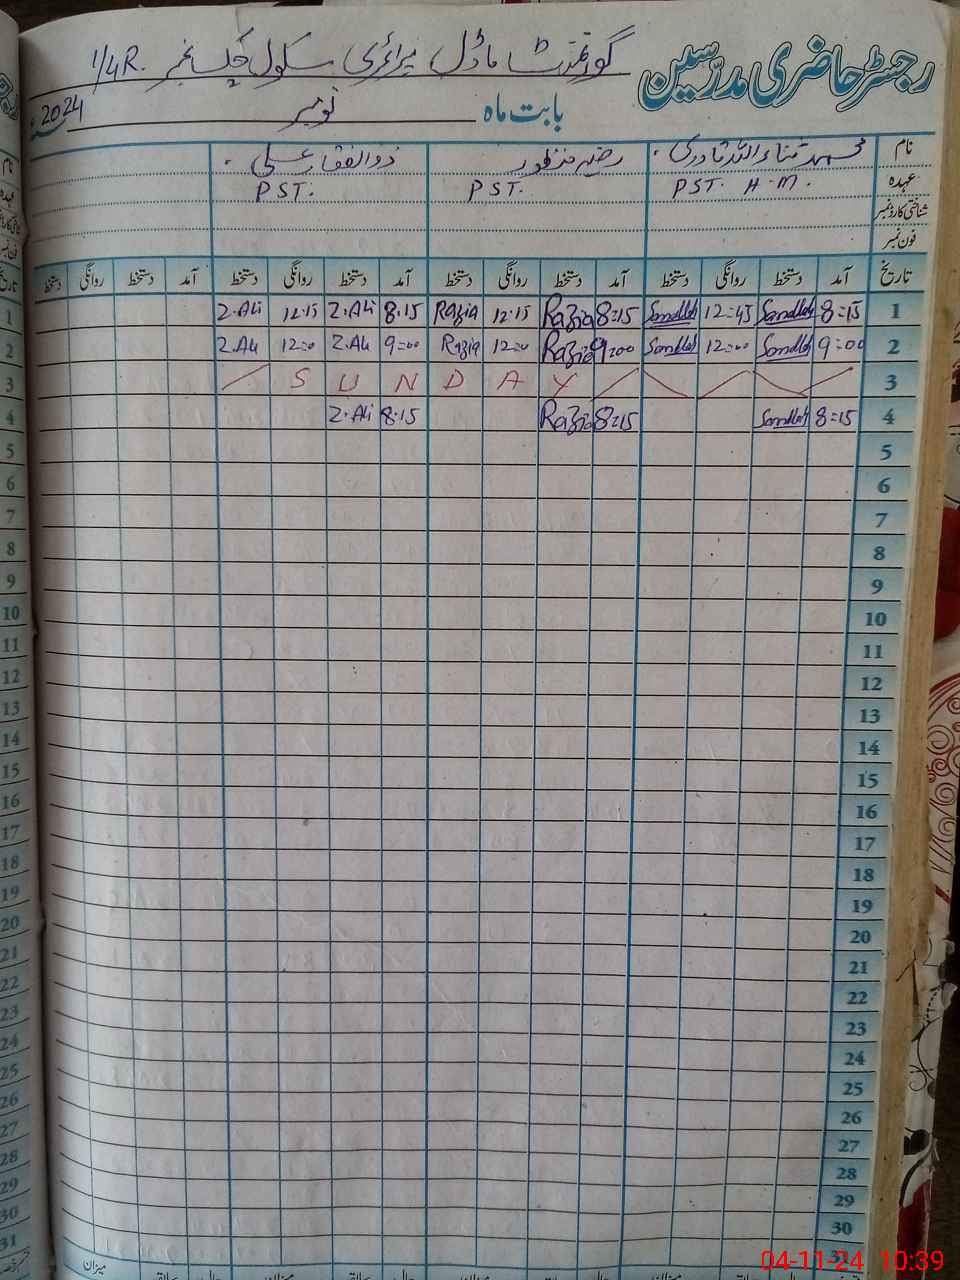 رجسٹر حاضری مدرسین
گورنمنٹ ماڈل پرائمری سکول چک نمبر 1/4R.
بابت ماہ نومبر 2024
نام محمد ثناء اللہ قادری رضیہ منظور ذوالفقار علی
عہدہ PST. H.M. PST. PST.
شناختی کارڈ نمبر
فون نمبر
تاریخ آمد دستخط روانگی دستخط آمد دستخط روانگی دستخط آمد دستخط روانگی دستخط آمد دستخط روانگی دستخط
1 8=15 12=45 8=15 Razia 12.15 Razia 8.15 Z.Ali 12.15 Z.Ali
2 9=00 12=00 9=00 Razia 12=0 Razia 9=00 Z.Ali 12=0 Z.Ali
3 SUNDAY
4 8=15 8=15 Razia 8.15 Z.Ali
5
6
7
8
9
10
11
12
13
14
15
16
17
18
19
20
21
22
23
24
25
26
27
28
29
30
میزان
04-11-24 10:39